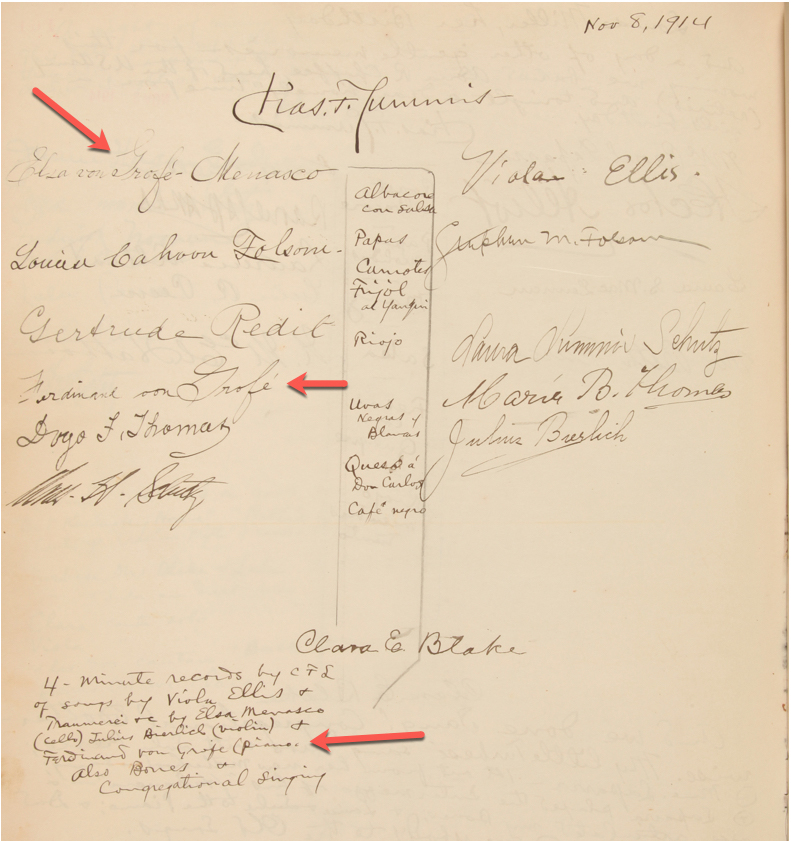 Nov 8, 1914
Chas. F. Lummis
Elsa von Grofé-Menasco
Viola Ellis.
Louisa Cahoon Folsom-
M. Folsom
Gertrude Redit
Laura Lummis Schutz
Ferdinand von Grofé
Maria B. Thomas
Doyo F. Thomas
Julius Bierlich
Wm. H. Schutz
Albacora
con Salsa
Papas
Camotes
Frijol
al Yanqui
Riojo
Uvas
Negras y
Blancas
Queso á
Don Carlos
Café negro
Clara E Blake
4-Minute records by CFL
of songs by Viola Ellis &
Traumerei &c by Elsa Menasco
(cello) Julius Bierlich (violin) &
Ferdinand von Grofe (piano.
Also Bones &
Congregational Singing